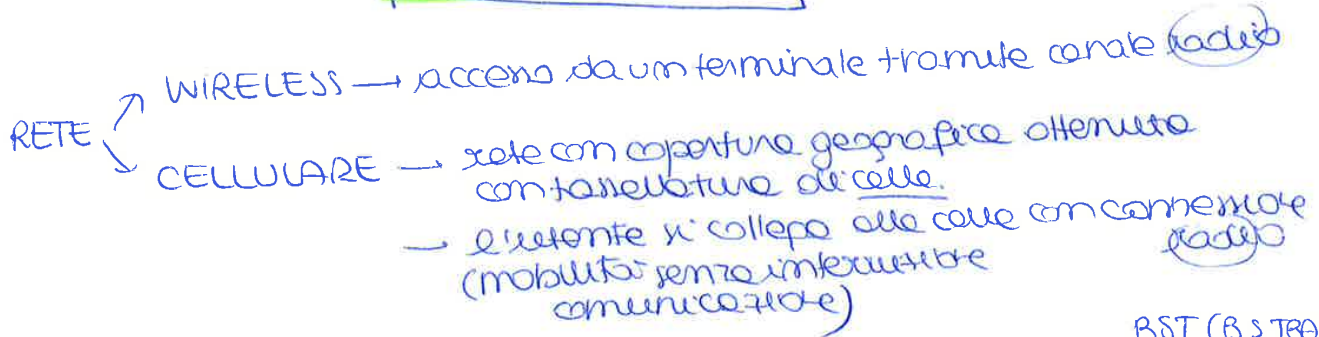 RETE
WIRELESS → accesso da un terminale tramite canale radio
CELLULARE → rete con copertura geografica ottenuta
con tassellatura di celle.
→ l'utente si collega alle celle con connessione
radio
(mobilità senza interruzione
comunicazione)
BST (BS TRA